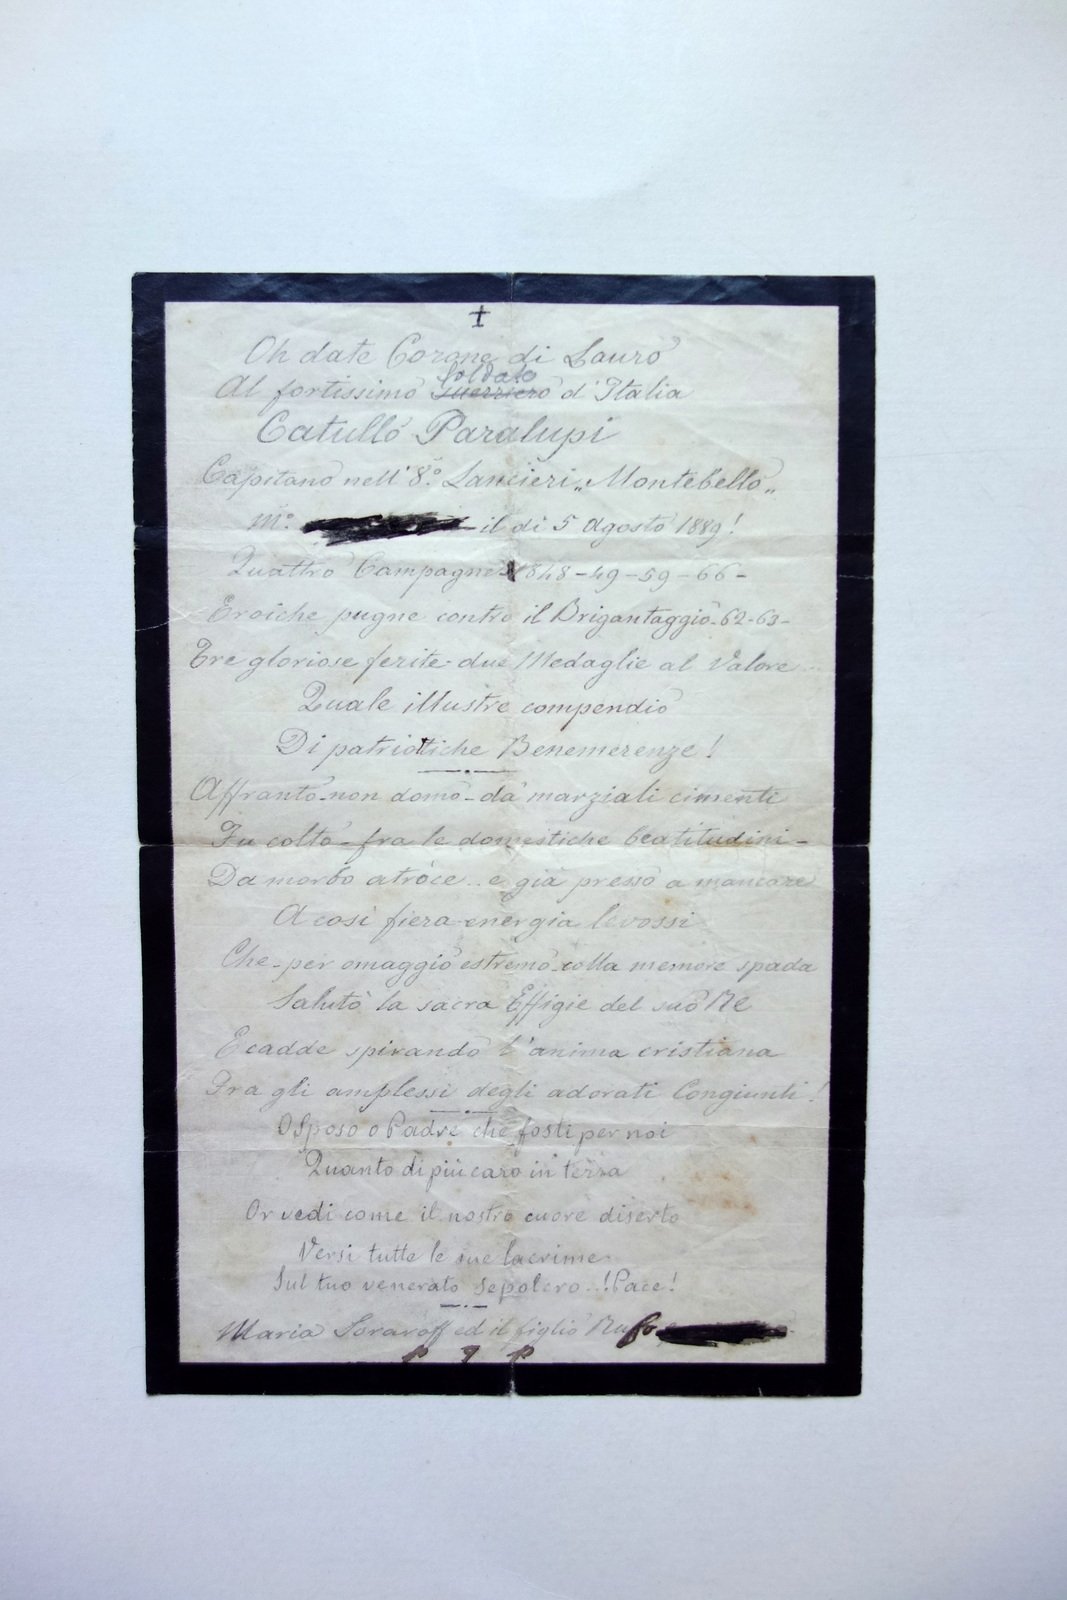 Oh date Corone di Lauro
Soldato
Al fortissimo Guerriero d'Italia
Catullo Paralupi
Capitano nell' 8.º Lancieri „Montebello„
Mº. il di 5 Agosto 1889!
Quattro Campagne 1848-49-59-66-
Eroiche pugne contro il Brigantaggio-62-63-
Tre gloriose ferite-due Medaglie al Valore...
Quale illustre compendio
Di patriotiche Benemerenze!
Affranto-non domo-da marziali cimenti
Fu colto-fra le domestiche beatitudini-
Da morbo atroce.. e già presso a mancare
A così fiera energia levossi
Che-per omaggio estremo-colla memore spada
Salutò la sacra Effigie del suo Re
E cadde spirando l'anima cristiana
Fra gli amplessi degli adorati Congiunti!
O Sposo o Padre che fosti per noi
Quanto di più caro in terra
Or vedi come il nostro cuore diserto
Versi tutte le sue lacrime
Sul tuo venerato sepolcro..! Pace!
Maria Soraroff ed il figlio
p g p